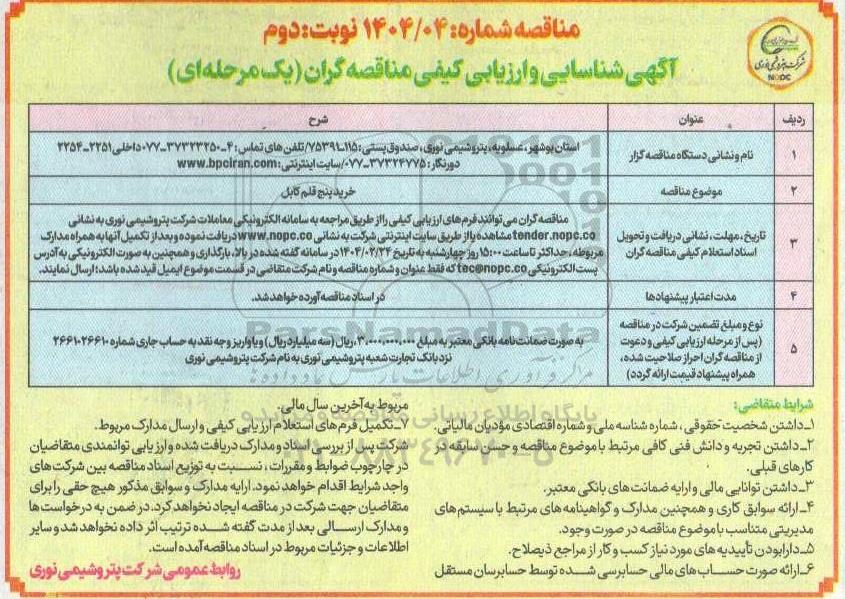 مناقصه شماره: ۱۴۰۴/۰۴ نوبت: دوم
آگهی شناسایی و ارزیابی کیفی مناقصه گران (یک مرحله‌ای)
شرکت پتروشیمی نوری
NOPC
ردیف عنوان شرح
۱ نام و نشانی دستگاه مناقصه گزار
استان بوشهر، عسلویه، پتروشیمی نوری، صندوق پستی: ۱۱۵-۷۵۳۹۱/تلفن های تماس: ۴-۳۷۳۲۳۲۵۰-۰۷۷ داخلی ۲۲۵۱-۲۲۵۴
دورنگار: ۳۷۳۲۴۷۷۵-۰۷۷/سایت اینترنتی: www.bpciran.com
۲ موضوع مناقصه خرید پنج قلم کابل
۳ تاریخ، مهلت، نشانی دریافت و تحویل
اسناد استعلام کیفی مناقصه گران
مناقصه گران می توانند فرم های ارزیابی کیفی را از طریق مراجعه به سامانه الکترونیکی معاملات شرکت پتروشیمی نوری به نشانی
tender.nopc.co مشاهده یا از طریق سایت اینترنتی شرکت به نشانی www.nopc.co دریافت نموده و بعد از تکمیل آنها به همراه مدارک
مربوطه، حداکثر تا ساعت ۱۵:۰۰ روز چهارشنبه به تاریخ ۱۴۰۴/۰۲/۲۴ در سامانه گفته شده در بالا، بارگذاری و همچنین به صورت الکترونیکی به آدرس
پست الکترونیکی tec@nopc.co که فقط عنوان و شماره مناقصه و نام شرکت متقاضی در قسمت موضوع ایمیل قید شده باشد؛ ارسال نمایند.
۴ مدت اعتبار پیشنهادها در اسناد مناقصه آورده خواهد شد.
۵ نوع و مبلغ تضمین شرکت در مناقصه
(پس از مرحله ارزیابی کیفی و دعوت
از مناقصه گران احراز صلاحیت شده،
همراه پیشنهاد قیمت ارائه گردد)
به صورت ضمانت نامه بانکی معتبر به مبلغ ۳،۰۰۰،۰۰۰،۰۰۰ ریال (سه میلیارد ریال) و یا واریز وجه نقد به حساب جاری شماره ۲۶۶۱۰۲۶۶۱۰
نزد بانک تجارت شعبه پتروشیمی نوری به نام شرکت پتروشیمی نوری
ParsNamadData
مرکز فرآوری اطلاعات پارس نماد داده ها
پایگاه اطلاع رسانی مناقصه و مزایده
شرایط متقاضی:
۱-داشتن شخصیت حقوقی، شماره شناسه ملی و شماره اقتصادی مؤدیان مالیاتی.
۲-داشتن تجربه و دانش فنی کافی مرتبط با موضوع مناقصه و حسن سابقه در
کارهای قبلی.
۳-داشتن توانایی مالی و ارایه ضمانت های بانکی معتبر.
۴-ارائه سوابق کاری و همچنین مدارک و گواهینامه های مرتبط با سیستم های
مدیریتی متناسب با موضوع مناقصه در صورت وجود.
۵-دارا بودن تأییدیه های مورد نیاز کسب و کار از مراجع ذیصلاح.
۶-ارائه صورت حساب های مالی حسابرسی شده توسط حسابرسان مستقل
مربوط به آخرین سال مالی.
۷-تکمیل فرم های استعلام ارزیابی کیفی و ارسال مدارک مربوط.
شرکت پس از بررسی اسناد و مدارک دریافت شده و ارزیابی توانمندی متقاضیان
در چارچوب ضوابط و مقررات، نسبت به توزیع اسناد مناقصه بین شرکت های
واجد شرایط اقدام خواهد نمود. ارایه مدارک و سوابق مذکور هیچ حقی را برای
متقاضیان جهت شرکت در مناقصه ایجاد نخواهد کرد. در ضمن به درخواست ها
و مدارک ارسالی بعد از مدت گفته شده ترتیب اثر داده نخواهد شد و سایر
اطلاعات و جزئیات مربوط در اسناد مناقصه آمده است.
روابط عمومی شرکت پتروشیمی نوری